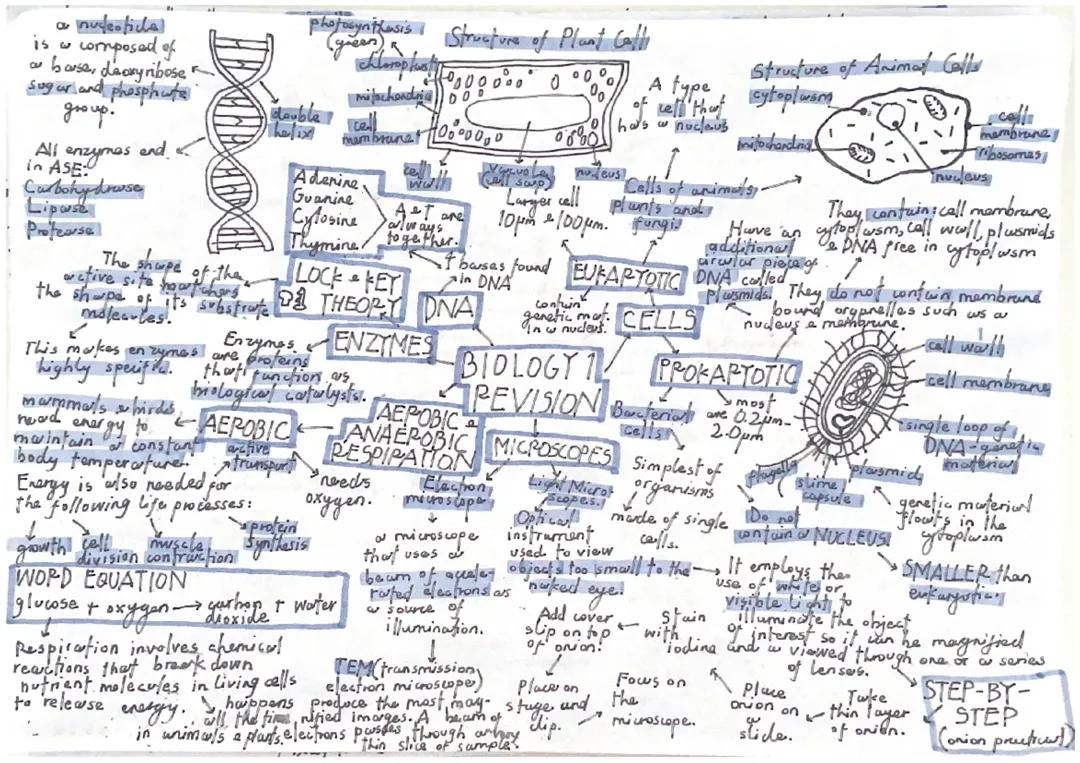 a nucleotide
is a composed of
a base, deoxyribose
sugar and phosphate
group.
double
helix
All enzymes end
in ASE:
Carbohydrase
Lipase
Protease
photosynthesis
(green)
chloroplast
mitochondria
cell
membrane
Structure of Plant Cell
cell
wall
vacuole
(cell sap)
nucleus
Larger cell
10μm & 100μm.
A type
of cell that
has a nucleus
Structure of Animal Cells
cytoplasm
mitochondria
cell
membrane
ribosomes
nucleus
Cells of animals,
plants and
fungi.
Adenine
Guanine
Cytosine
Thymine
A & T are
always
together.
4 bases found
in DNA
DNA
LOCK & KEY
THEORY
The shape of the
active site matches
the shape of its substrate
molecules.
This makes enzymes
highly specific.
ENZYMES
Enzymes
are proteins
that function as
biological catalysts.
EUKARYOTIC
contain
genetic mat.
in a nucleus.
CELLS
BIOLOGY 1
REVISION
PROKARYOTIC
Have an
additional
circular piece of
DNA called
plasmids.
They contain: cell membrane,
cytoplasm, cell wall, plasmids
& DNA free in cytoplasm
They do not contain membrane
bound organelles such as a
nucleus & membrane.
cell wall
cell membrane
single loop of
DNA - genetic
material
plasmids
slime
capsule
flagella
genetic material
floats in the
cytoplasm
most
are 0.2μm-
2.0μm
Bacterial
cells
Simplest of
organisms
made of single
cells.
Do not
contain a NUCLEUS.
SMALLER than
eukaryotic.
AEROBIC &
ANAEROBIC
RESPIRATION
AEROBIC
active
transport
needs
oxygen.
mammals & birds
need energy to
maintain a constant
body temperature.
Energy is also needed for
the following life processes:
growth
cell
division
muscle
contraction
protein
synthesis
WORD EQUATION
glucose + oxygen → carbon dioxide + water
Respiration involves chemical
reactions that break down
nutrient molecules in living cells
to release energy.
happens
all the time
in animals & plants.
MICROSCOPES
Electron
microscope
a microscope
that uses a
beam of accele-
rated electrons as
a source of
illumination.
TEM (transmission
electron microscope)
produce the most mag-
nified images. A beam of
electrons passes through a very
thin slice of sample.
Light Micro-
scopes.
Optical
instrument
used to view
objects too small to the
naked eye.
It employs the
use of white or
visible light to
illuminate the object
of interest so it can be magnified
and a viewed through one or a series
of lenses.
STEP-BY-
STEP
(onion practical)
Take
thin layer
of onion.
Place
onion on
a
slide.
Stain
with
iodine
Add cover
slip on top
of onion.
Place on
stage and
clip.
Focus on
the
microscope.